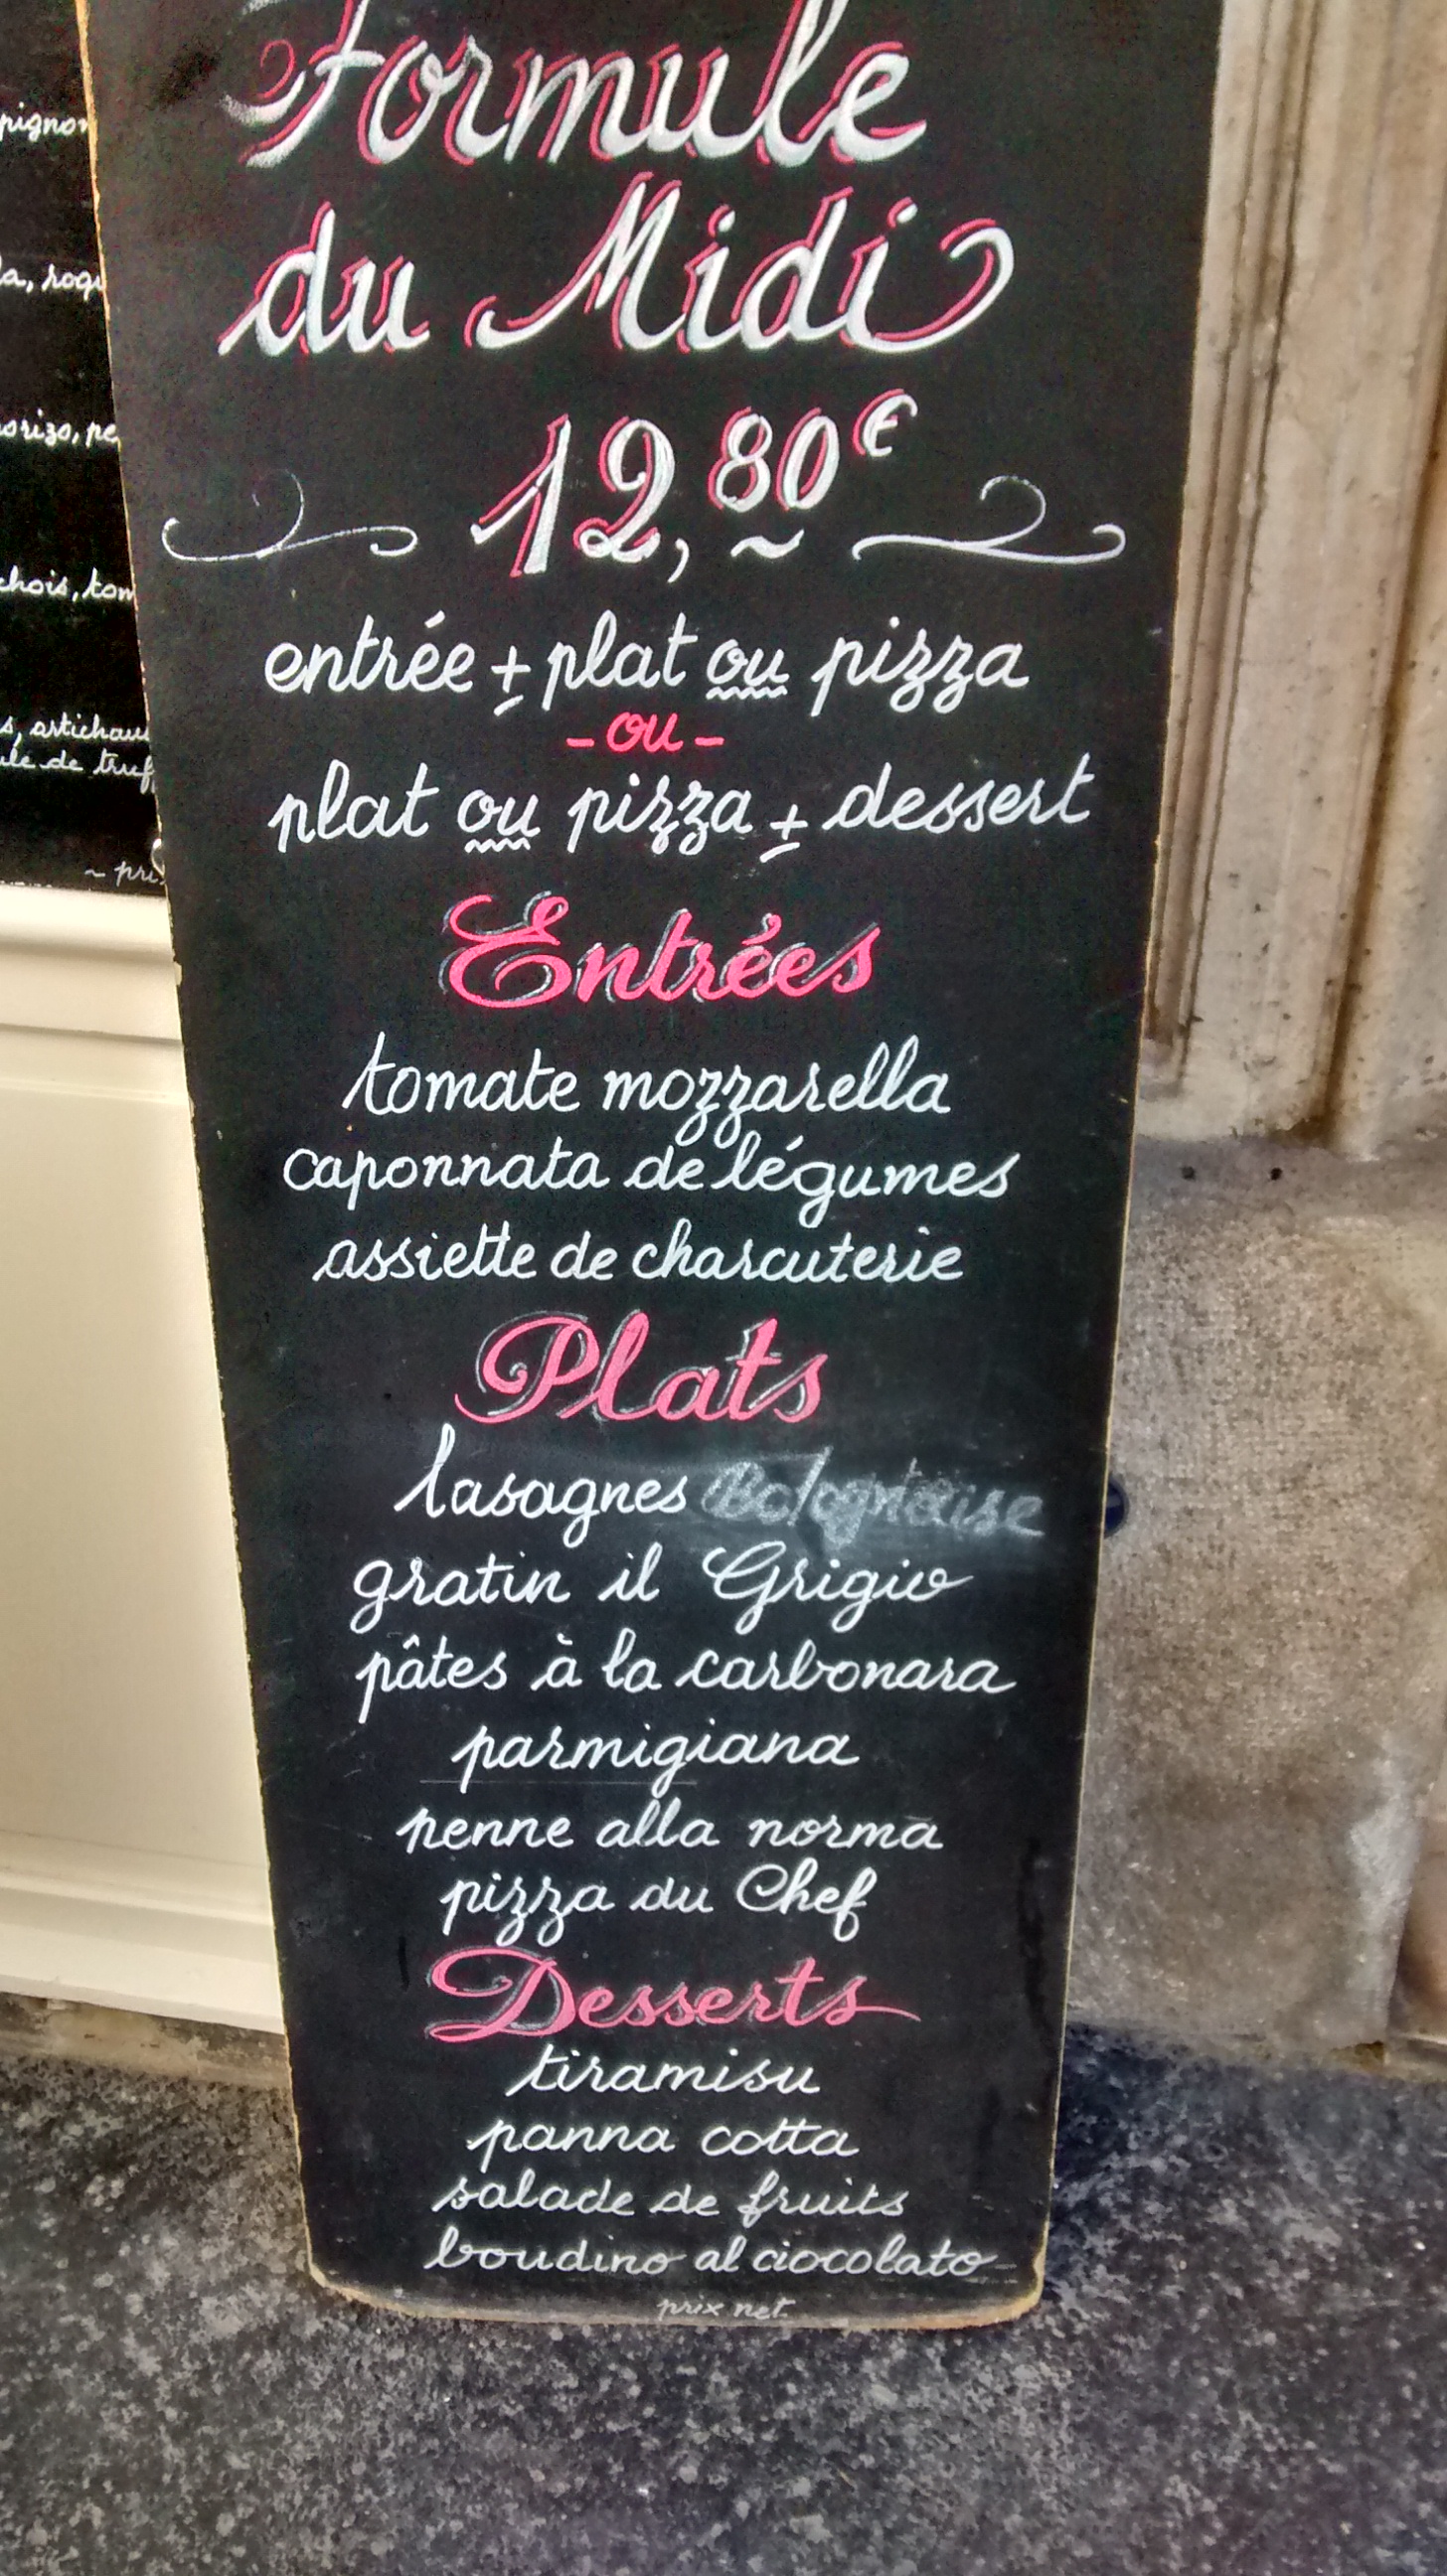 Formule
du Midi
12,80€
entrée + plat ou pizza
- ou -
plat ou pizza + dessert
Entrées
tomate mozzarella
caponnata de légumes
assiette de charcuterie
Plats
lasagnes
gratin il Grigio
pâtes à la carbonara
parmigiana
penne alla norma
pizza du Chef
Desserts
tiramisu
panna cotta
salade de fruits
boudino al ciocolato
prix net